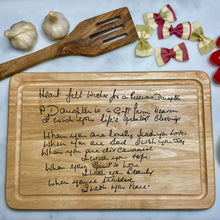 Heart felt Wishes for a Precious Daughter
A Daughter is a Gift from Heaven
I wish you life's greatest Blessings
When you are lonely I wish you Love
When you are Sad I wish you Joy
When you are discouraged
I wish you Hope
When your Spirit is Low
I wish you Beauty
When you're Troubled
I wish you Peace.